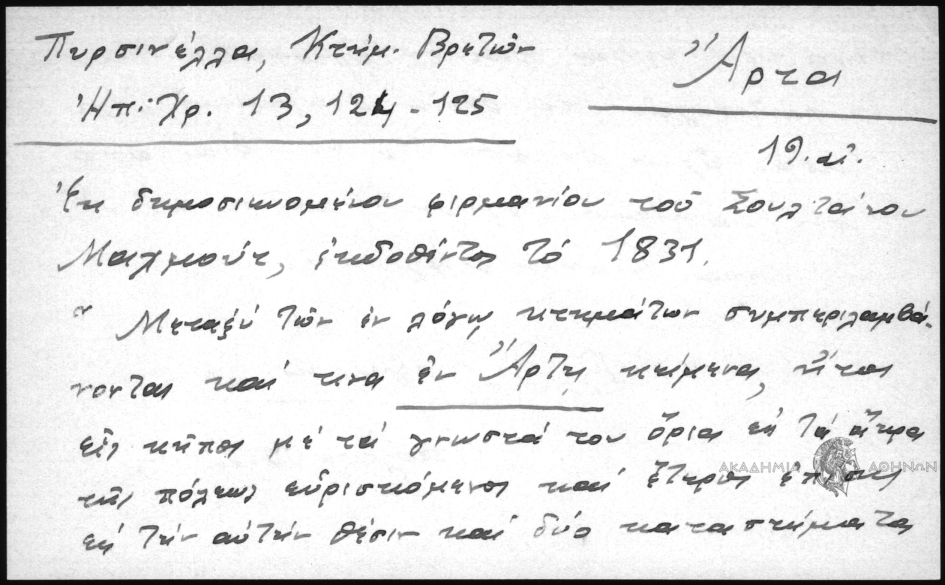 Πυρσινέλλα, Κτημ. Βρετῶν
Ἄρτα
Ἠπ. Χρ. 13, 124-125
19. αἰ.
Ἐκ δημοσιευομένου φιρμανίου τοῦ Σουλτάνου
Μαχμούτ, ἐκδοθέντος τό 1831.
" Μεταξύ τῶν ἐν λόγῳ κτημάτων συμπεριλαμβά-
νονται καί τινα ἐν Ἄρτῃ κείμενα, ἤτοι
εἷς κῆπος μέ τά γνωστά του ὅρια εἰς τά ἄκρα
τῆς πόλεως εὑρισκόμενος καί ἕτερος ἐπίσης
εἰς τήν αὐτήν θέσιν καί δύο καταστήματα
ΑΚΑΔΗΜΙΑ ΑΘΗΝΩΝ